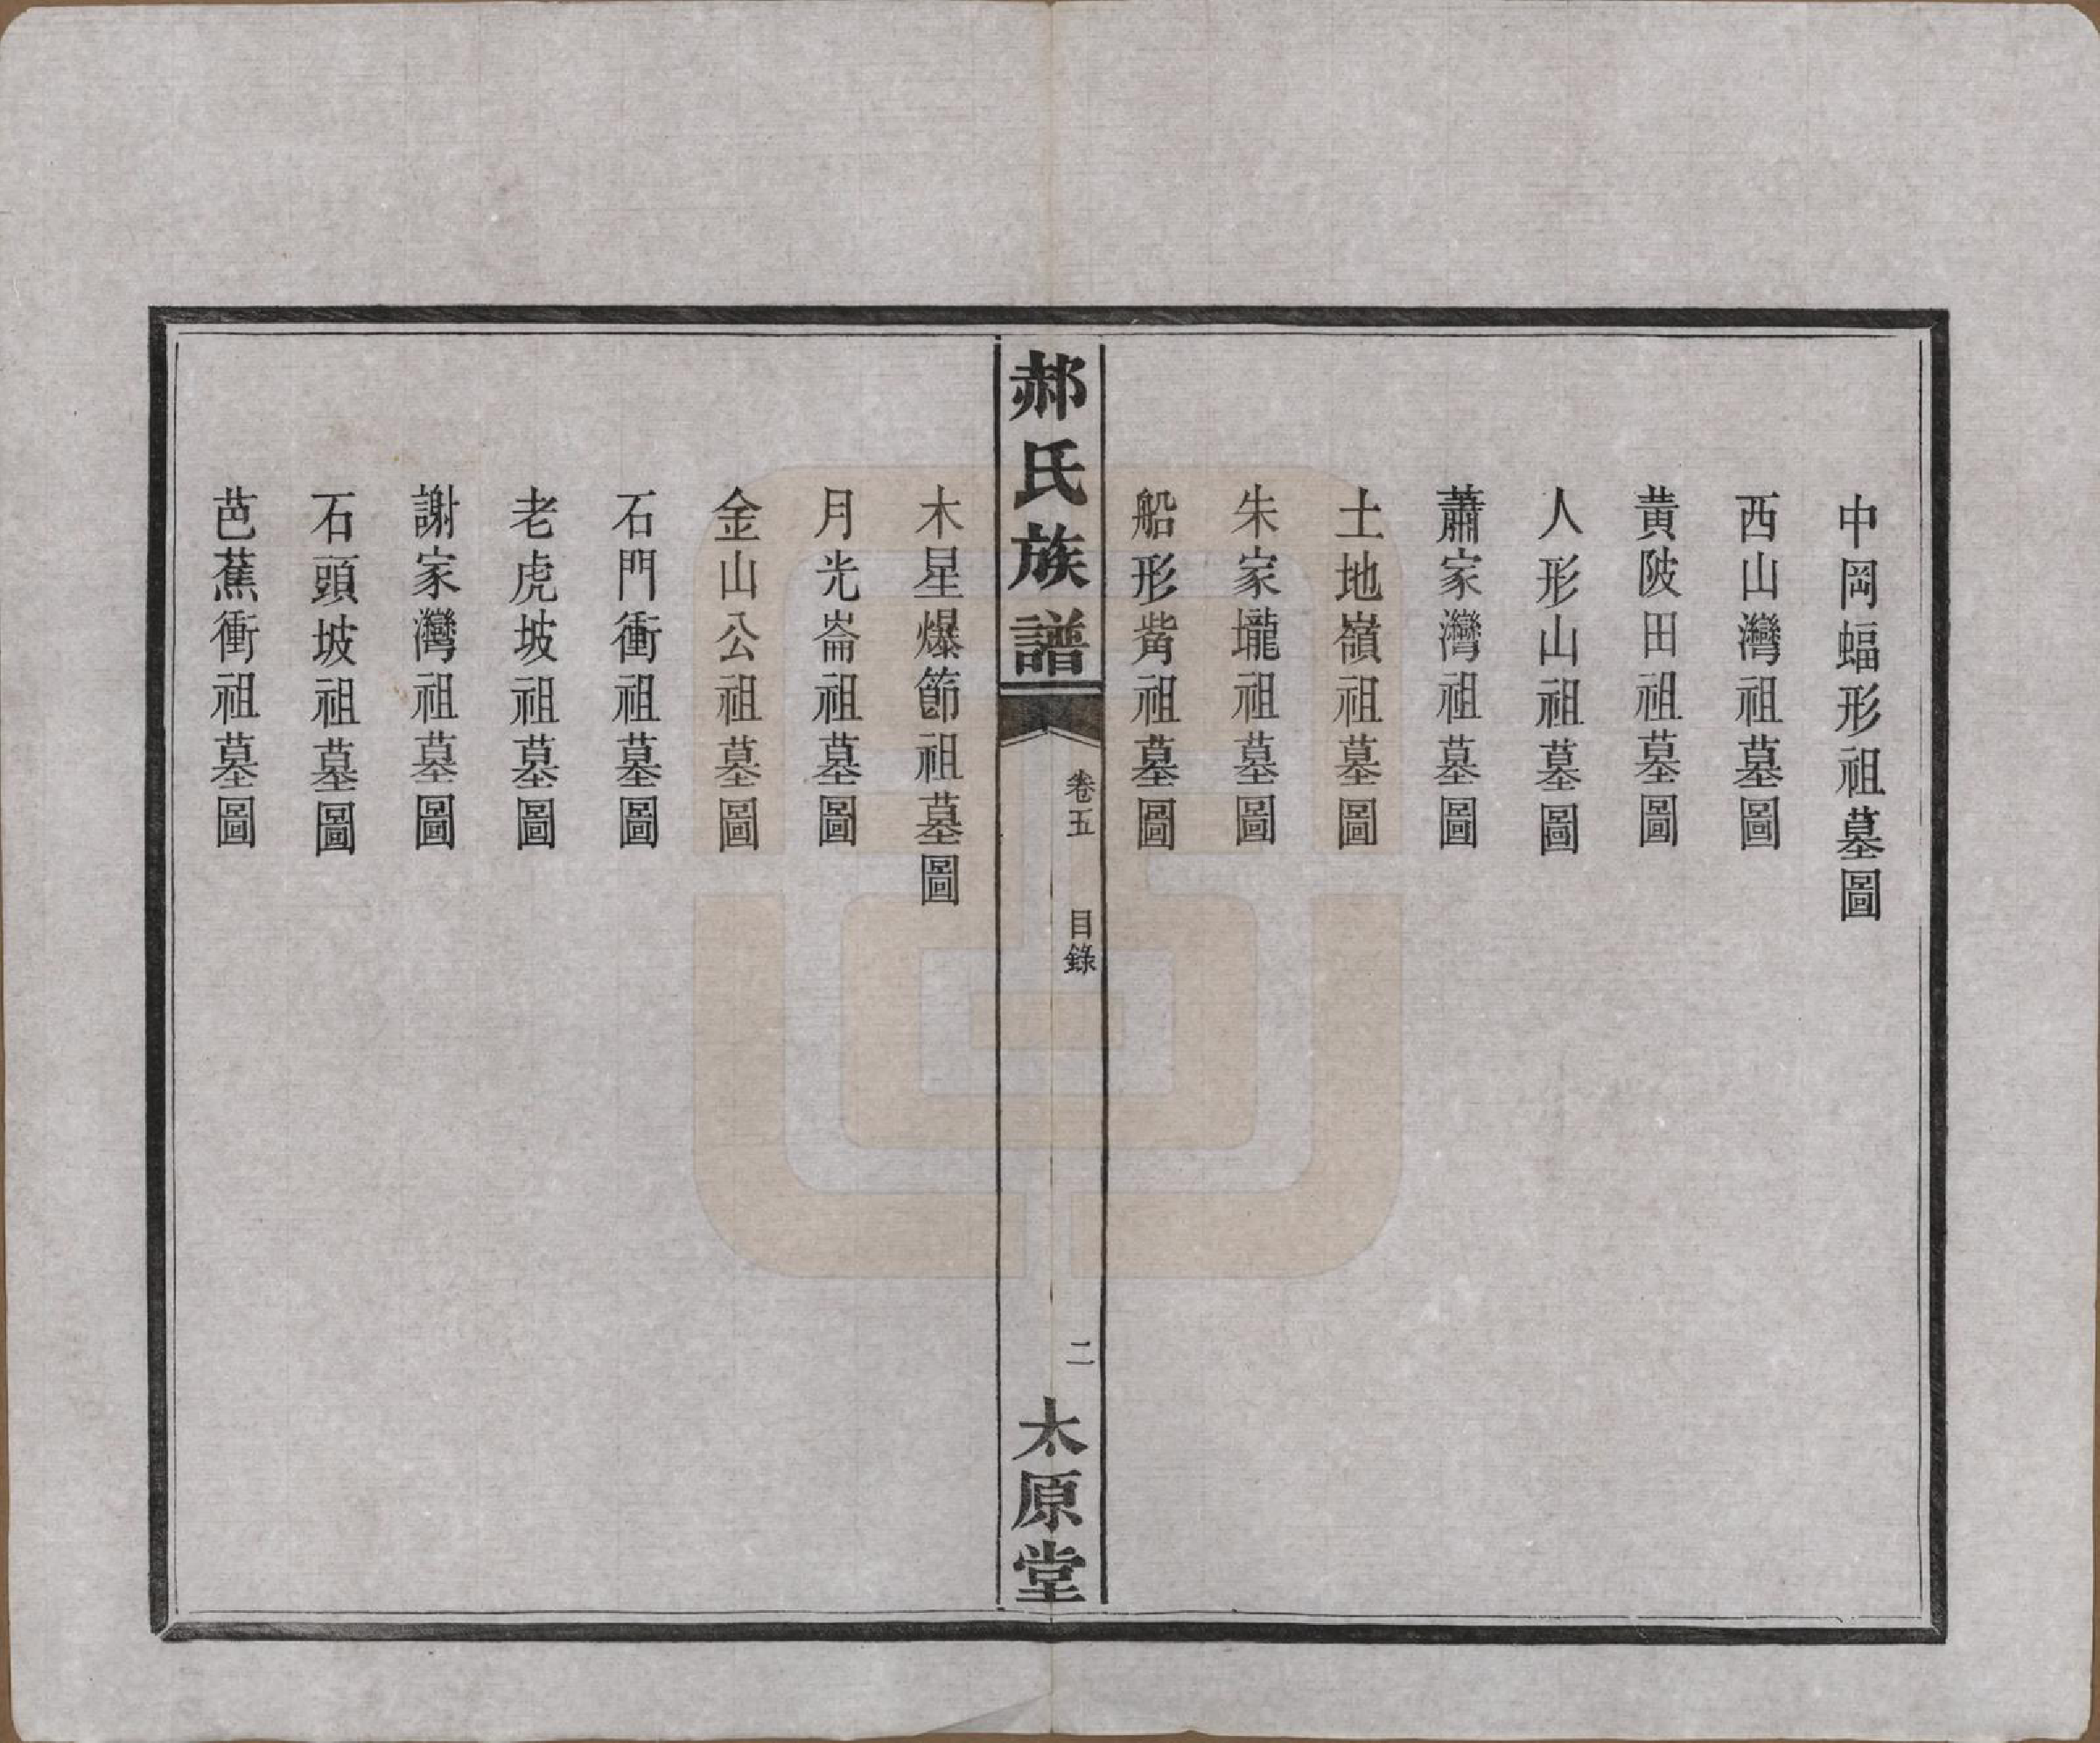 中岡蝠形祖墓圖
西山灣祖墓圖
黄陂田祖墓圖
人形山祖墓圖
蕭家灣祖墓圖
土地嶺祖墓圖
朱家壠祖墓圖
船形觜祖墓圖
郝氏族譜
卷五
目錄
二
太原堂
木星爆節祖墓圖
月光崙祖墓圖
金山公祖墓圖
石門衝祖墓圖
老虎坡祖墓圖
謝家灣祖墓圖
石頭坡祖墓圖
芭蕉衝祖墓圖